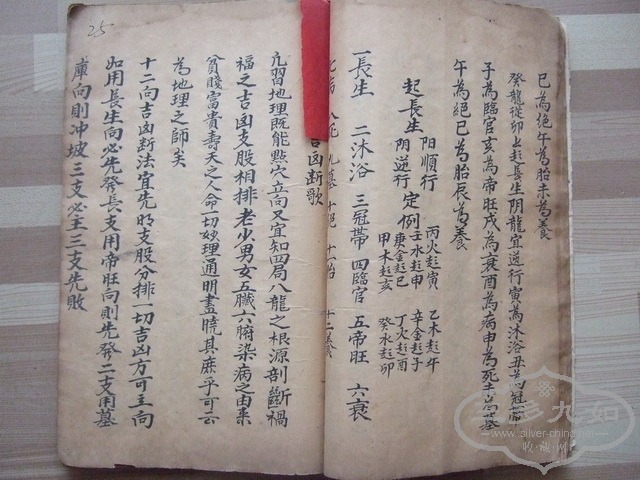 巳為絕午為胎未為養
癸龍從卯上起長生阴龍宜逆行寅為沐浴丑為冠帶
子為臨官亥為帝旺戌為衰酉為病申為死未為墓
午為絕巳為胎辰為養
起長生 阳順行 阴逆行 定例
丙火起寅 壬水起申 庚金起巳 甲木起亥
乙木起午 辛金起子 丁火起酉 癸水起卯
一長生 二沐浴 三冠帯 四臨官 五帝旺 六衰
九墓 十絕 十一胎 十二養
吉凶断歌
凣習地理既能點穴立向又宜知四局八龍之根源剖斷禍
福之吉凶支股相排老少男女五臟六腑染病之由来
貧賤富貴壽夭之人命一切妙理通明盡曉其庶乎可云
為地理之師矣
十二向吉凶断法宜先明支股分排一切吉凶方可主向
如用長生向必先發長支用帝旺向則先發二支用墓
庫向則冲坡三支必主三支先敗
25
www.silver-china.net
收·藏·网